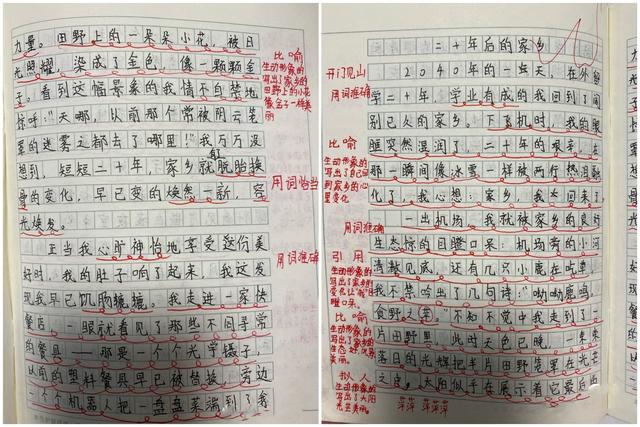 力量。田野上的一朵朵小花，被日
光照耀，染成了金色，像一颗颗金
子。看到这幅景象的我情不自禁地
惊呼："天哪，以前那个常被阴云笼
罩的迷雾之都去了哪里！"我万万没
想到，短短二十年，家乡就脱胎换
骨的变化，早已变的焕然一新，容
光焕发。
正当我心旷神怡地享受这份美
好时，我的肚子响了起来，我这发
现我早已饥肠辘辘。我走进一家快
餐店，一眼就看见了那些不同寻常
的餐具——那是一个个光学镊子，
以前的塑料餐具早已被替换，旁边
一个个机器人把一盘盘菜端到了客
比喻
生动形象的
写出了家乡的
田野上的小花
像金子一样美
丽
用词恰当
用词准确
二十年后的家乡
2040年的一天，在外留
学二十年，学业有成的我回到了阔
别已久的家乡。下飞机时，我的眼
眶突然湿润了，二十年的艰辛，在
那一瞬间像冰雪一样被两行热泪融
化了，我心想：家乡，我回来了
一出机场，我就被家乡的良好
生态惊的目瞪口呆：机场旁的小河
清澈见底，还有几只小鹿在吃草，
我不禁吟出了几句诗："呦呦鹿鸣，
食野之苹"不知不觉中我走到了一
片田野里，此时天色已晚，一束束
落日的光辉把半片田野笼罩在光芒
之中，太阳似乎在展示着它最后的
开门见山
用词准确
比喻
生动形象的
写出了自己回
到家乡的心
里变化
用词准确
引用
生动形象的
比喻
生动形象的
写出了家乡的
拟人
生动形象的
写出了太阳